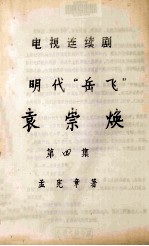 电视连续剧
明代“岳飞”
袁崇焕
第四集
孟宪章著